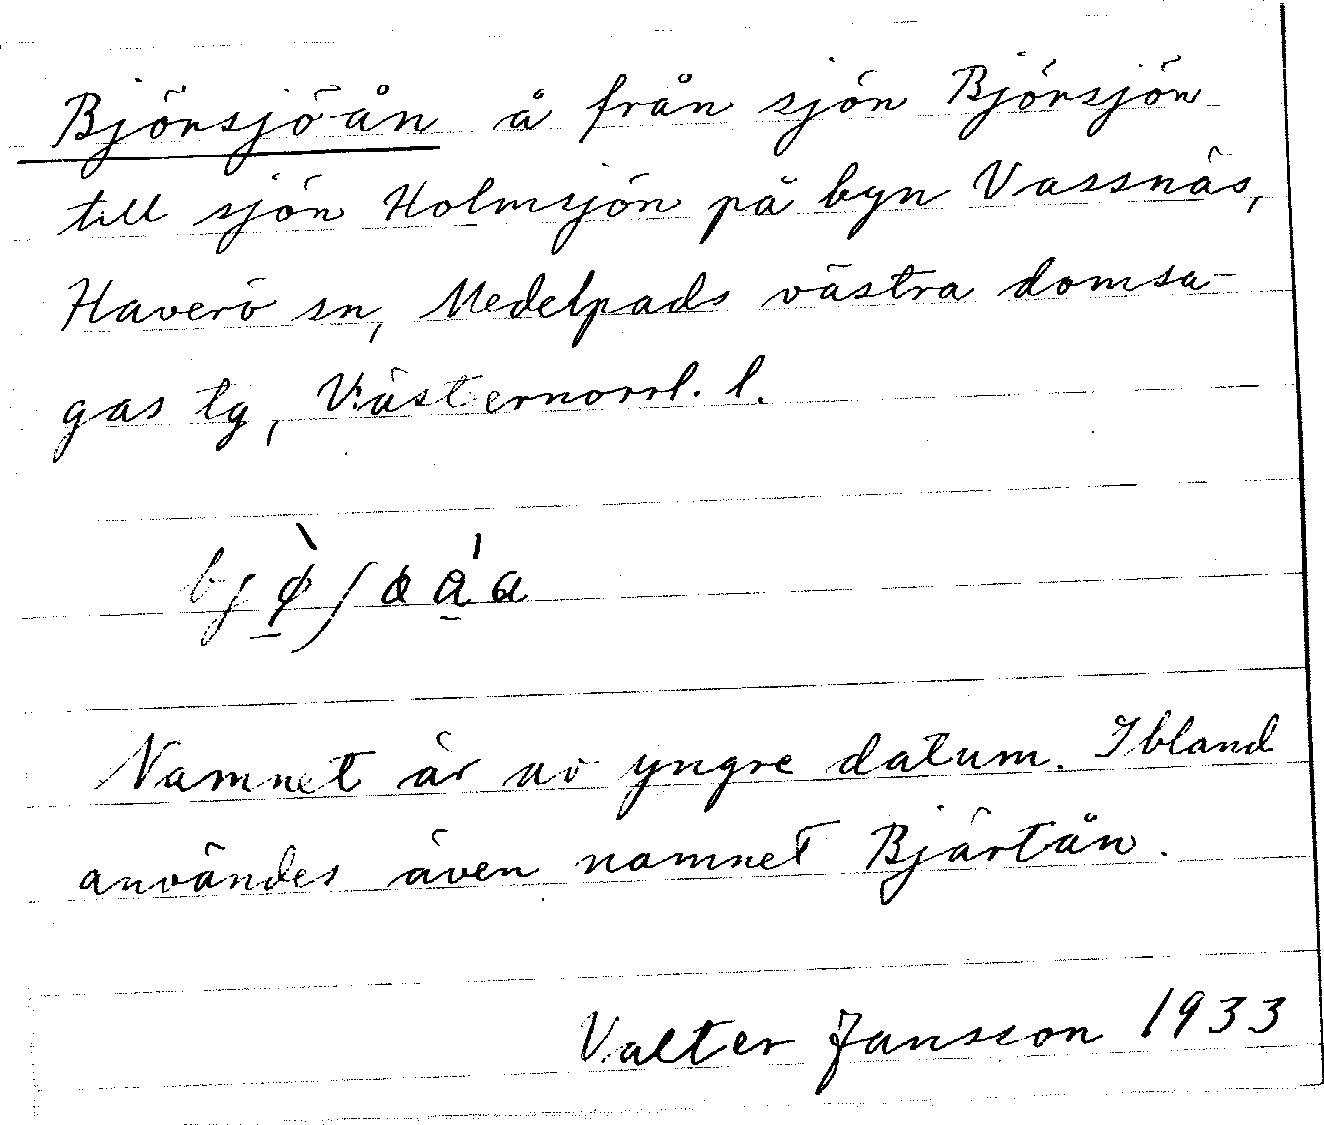 Björsjöån å från sjön Björsjön
till sjön Holmsjön på byn Vassnäs,
Haverö sn, Medelpads västra domsa-
gas tg, Västernorrl. l.
Namnet är av yngre datum. Ibland
användes även namnet Bjärtån.
Valter Jansson 1933